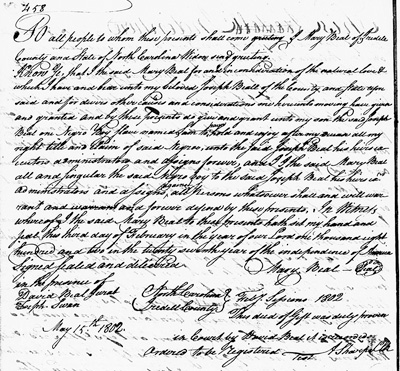 458
To all people to whom these presents shall come greeting I Mary Beal of Iredell
County and State of North Carolina Widow send greeting
Know Ye, that I the said Mary Beal for and in consideration of the natural love &
which I have and bear unto my beloved Joseph Beal of the County and State afore
said and for divers other causes and considerations me hereunto moving have given
and granted and by these presents do give and grant unto my son the said Joseph
Beal one Negro boy slave named to hold and enjoy after my decease all my
right title and Claim of said Negro, unto the said Joseph Beal his heirs ex
ecutors administrators and assigns forever, and I the said Mary Beal
all and singular the said Negro boy to the said Joseph Beal his heirs
administrators and assigns against all Persons whatsoever shall and will war
rant and forever defend by these presents, In Witness
whereof I the said Mary Beal to these presents hath set my hand and
seal this third day of February in the year of our Lord one thousand eight
hundred and two in the twenty seventh year of the independence of
Signed sealed and delivered Mary Beal Seal
in the presence of
David Beal Jurat
Joseph Swan
North Carolina
Iredell County
Feby Sessions 1802
This deed of Gift was duly proven
in Court by David Beal
Ordered to be Registered Test
May 15th 1802.